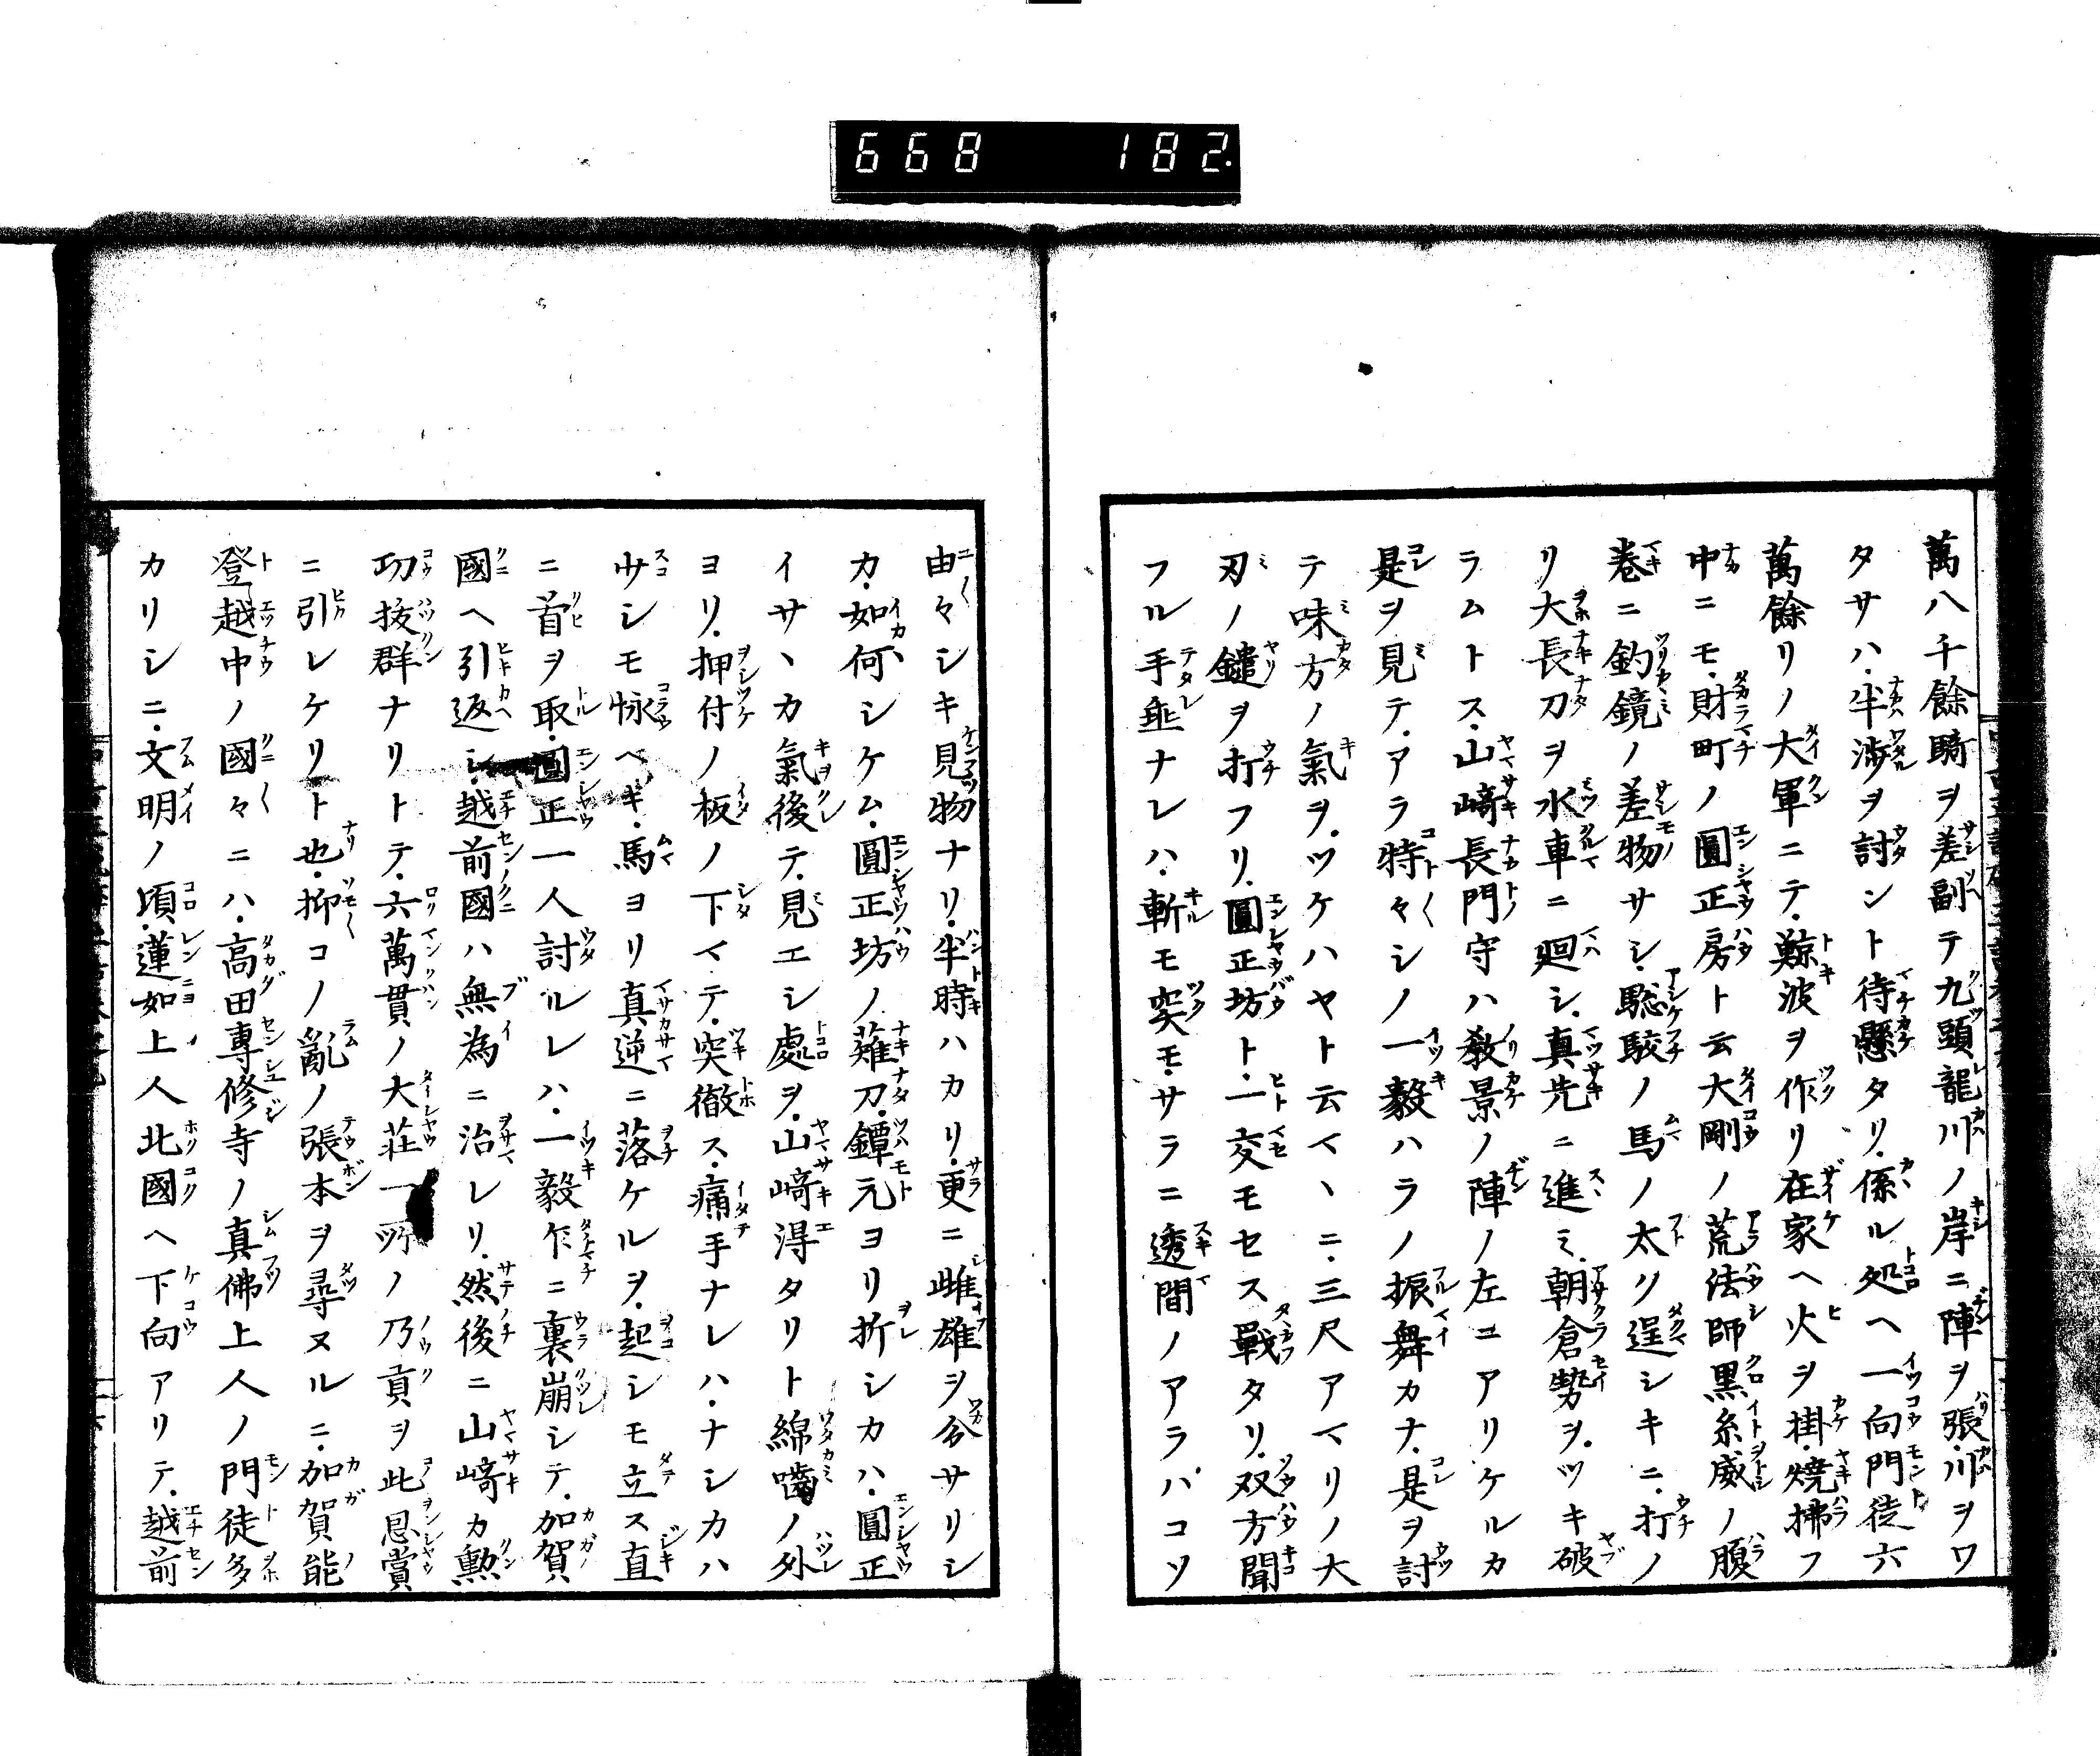 668 182
萬八千餘騎ヲ差副テ九頭龍川ノ岸ニ陣ヲ張川ヲワ
タサハ半渉ヲ討ント待懸タリ係ル処ヘ一向門徒六
萬餘リノ大軍ニテ鯨波ヲ作リ在家ヘ火ヲ掛焼拂フ
中ニモ財町ノ圓正房ト云大剛ノ荒法師黒糸威ノ腹
巻ニ釣鏡ノ差物サシ騘駮ノ馬ノ太ク逞シキニ打ノ
リ大長刀ヲ水車ニ廻シ真先ニ進ミ朝倉勢ヲツキ破
ラムトス山﨑長門守ハ教景ノ陣ノ左ニアリケルカ
是ヲ見テアラ特々シノ一毅ハラノ振舞カナ是ヲ討
テ味方ノ氣ヲツケハヤト云マヽニ三尺アマリノ大
刃ノ鑓ヲ打フリ圓正坊ト一交モセス戰タリ双方聞
フル手埀ナレハ斬モ突モサラニ透間ノアラハコソ
由々シキ見物ナリ半時ハカリ更ニ雌雄ヲ分サリシ
カ如何シケム圓正坊ノ薙刀鐔元ヨリ折シカハ圓正
イサヽカ氣後テ見エシ處ヲ山﨑得タリト綿噛ノ外
ヨリ押付ノ板ノ下マテ突徹ス痛手ナレハナシカハ
少シモ怺ヘキ馬ヨリ真逆ニ落ケルヲ起シモ立ス直
ニ首ヲ取圓正一人討ルレハ一毅乍ニ裏崩シテ加賀
國ヘ引返シ越前國ハ無為ニ治レリ然後ニ山﨑カ勲
功抜群ナリトテ六萬貫ノ大莊一所ノ乃貢ヲ此恩賞
ニ引レケリト也抑コノ亂ノ張本ヲ尋ヌルニ加賀能
登越中ノ國々ニハ高田專修寺ノ真佛上人ノ門徒多
カリシニ文明ノ頃蓮如上人北國ヘ下向アリテ越前